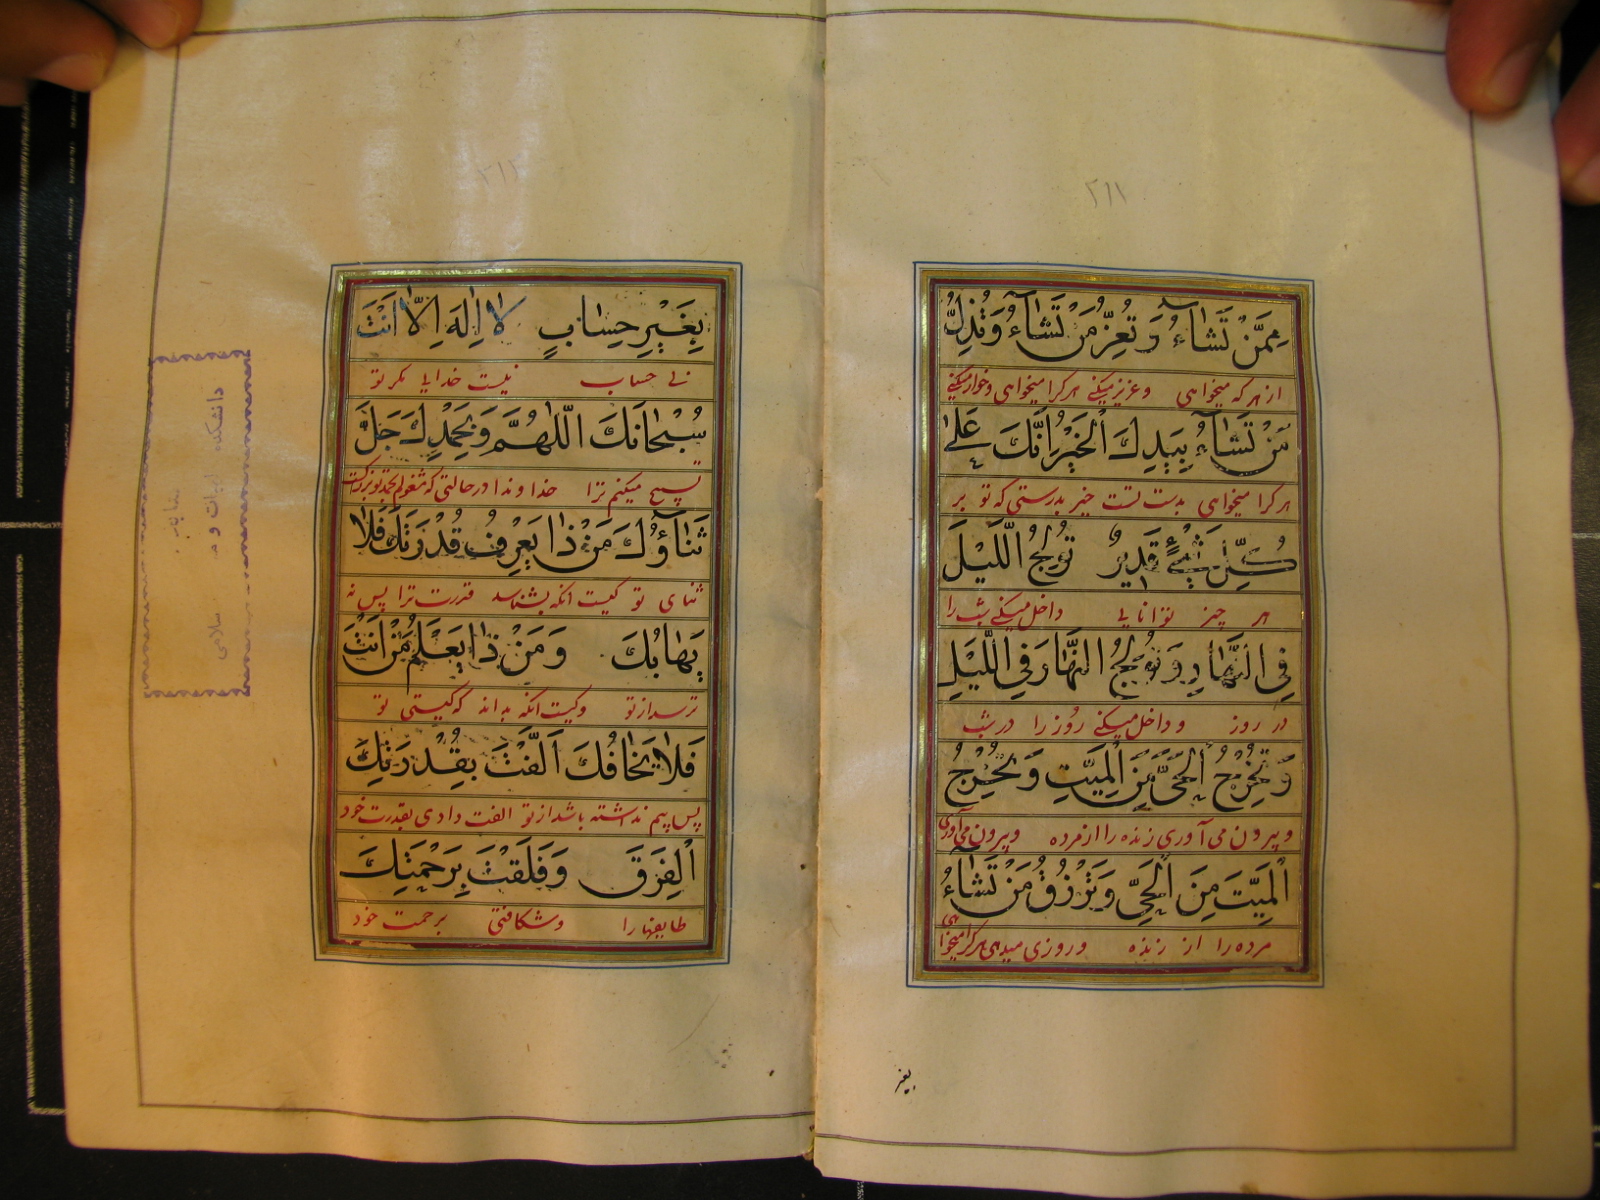 ٢١١
مِمَّنْ تَشَاءُ وَتُعِزُّ مَنْ تَشَاءُ وَتُذِلُّ
از هر که میخواهی و عزیز میکنے هر کرا میخواهی و خوار میکنے
مَنْ تَشَاءُ بِيَدِكَ الْخَيْرُ اِنَّكَ عَلىٰ
هر کرا میخواهی بدست تست خیر بدرستی که تو بر
كُلِّ شَيْءٍ قَدِيرٌ تُولِجُ اللَّيْلَ
هر چیز توانایی داخل میکنے شب را
فِي النَّهَارِ وَتُولِجُ النَّهَارَ فِي اللَّيْلِ
در روز و داخل میکنے روز را در شب
وَتُخْرِجُ الْحَيَّ مِنَ الْمَيِّتِ وَتُخْرِجُ
و بیرون می آوری زنده را از مرده و بیرون می آوری
الْمَيِّتَ مِنَ الْحَيِّ وَتَرْزُقُ مَنْ تَشَاءُ
مرده را از زنده و روزی میدهی هر کرا میخواهی
بغیر
٢١٢
بِغَيْرِ حِسَابٍ لَا اِلٰهَ اِلَّا اَنْتَ
بی حساب نیست خدایا مگر تو
سُبْحَانَكَ اللّٰهُمَّ وَبِحَمْدِكَ جَلَّ
تسبیح میکنم ترا خداوندا در حالتی که مشغولم بحمد تو بزرگست
ثَنَاؤُكَ مَنْ ذَا يَعْرِفُ قُدْرَتَكَ فَلَا
ثنای تو کیست آنکه بشناسد قدرت ترا پس نه
يَهَابُكَ وَمَنْ ذَا يَعْلَمُ مَنْ اَنْتَ
ترسد از تو و کیست آنکه بداند که کیستی تو
فَلَا يَخَافُكَ اَلَّفْتَ بِقُدْرَتِكَ
پس بیم نداشته باشد از تو الفت دادی بقدرت خود
الْفِرَقَ وَفَلَقْتَ بِرَحْمَتِكَ
طایفها را و شکافتی برحمت خود
دانشکده الهیات و
سلامی